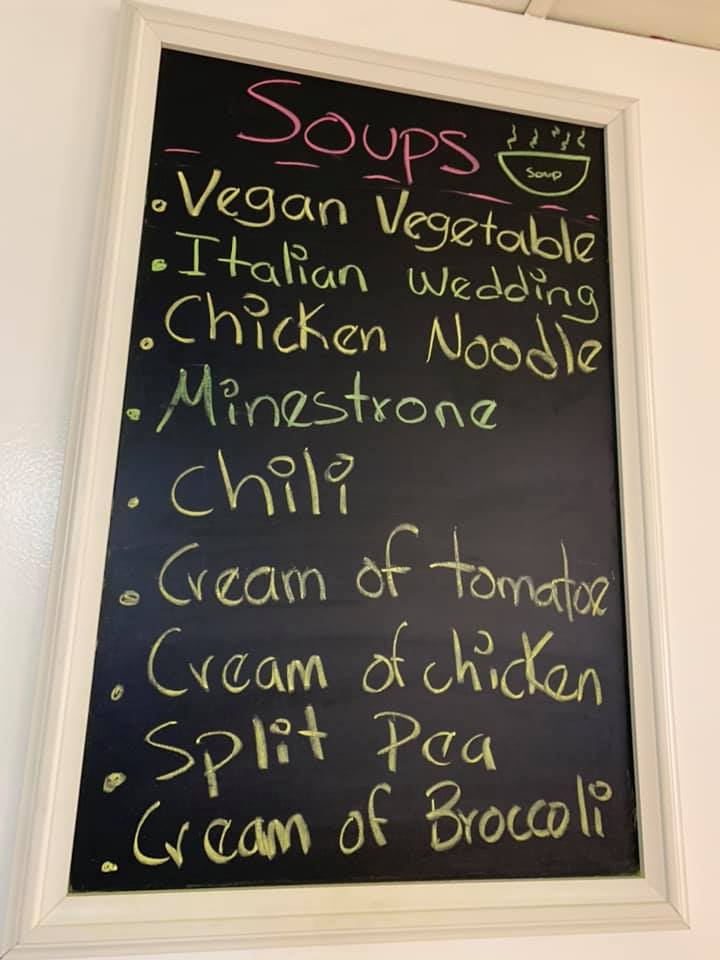 Soups
Soup
• Vegan Vegetable
• Italian Wedding
• Chicken Noodle
• Minestrone
• Chili
• Cream of tomatoe
• Cream of chicken
• Split Pea
• Cream of Broccoli